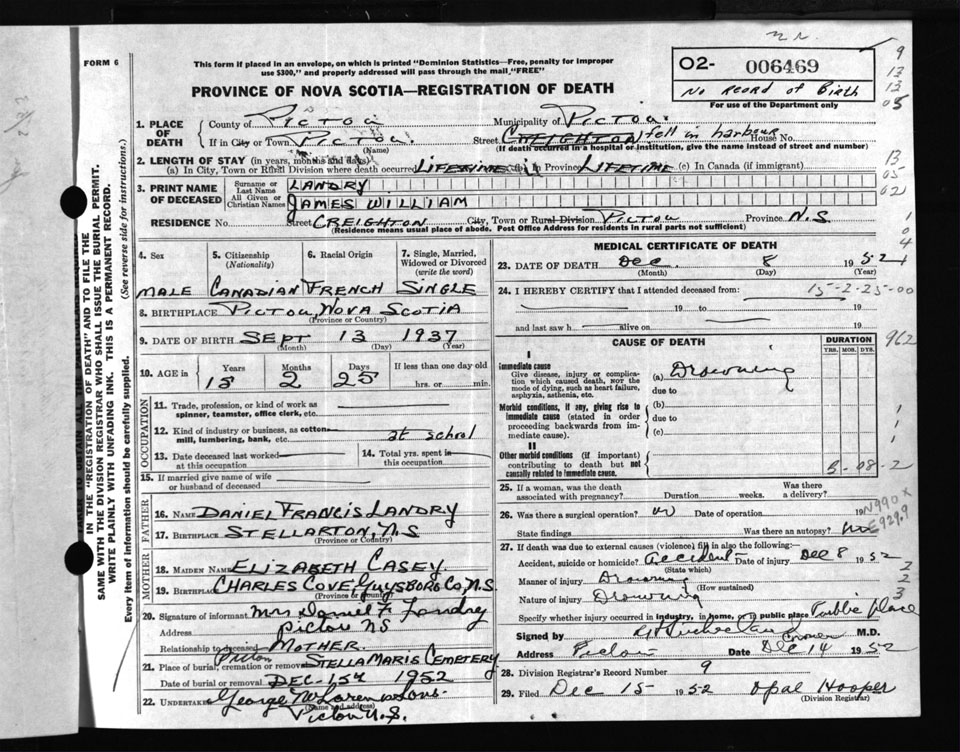 FORM 6
This form if placed in an envelope, on which is printed "Dominion Statistics—Free, penalty for improper
use $300," and properly addressed will pass through the mail "FREE"
PROVINCE OF NOVA SCOTIA—REGISTRATION OF DEATH
O2- 006469
No Record of Birth
For use of the Department only
9
13
13
05
1. PLACE OF DEATH
County of Pictou Municipality of Pictou.
If in City or Town Pictou. Street CREIGHTON fell in harbour House No.
(Name) (If death occurred in a hospital or institution, give the name instead of street and number)
2. LENGTH OF STAY (in years, months and days)
(a) In City, Town or Rural Division where death occurred LIFETIME in Province LIFETIME (c) In Canada (if immigrant)
3. PRINT NAME OF DECEASED
Surname or Last Name LANDRY
All Given or Christian Names JAMES WILLIAM
RESIDENCE No. Street CREIGHTON City, Town or Rural Division PICTOU Province N.S
(Residence means usual place of abode. Post Office Address for residents in rural parts not sufficient)
13
05
02
1
0
4
4. Sex MALE
5. Citizenship (Nationality) CANADIAN
6. Racial Origin FRENCH
7. Single, Married, Widowed or Divorced (write the word) SINGLE
8. BIRTHPLACE PICTOU, NOVA SCOTIA
(Province or Country)
9. DATE OF BIRTH SEPT 13 1937
(Month) (Day) (Year)
10. AGE in Years 15 Months 2 Days 25 If less than one day old
hrs. or min.
OCCUPATION
11. Trade, profession, or kind of work as
spinner, teamster, office clerk, etc.
12. Kind of industry or business, as cotton-
mill, lumbering, bank, etc. at school
13. Date deceased last worked
at this occupation
14. Total yrs. spent in
this occupation
15. If married give name of wife
or husband of deceased
FATHER
16. NAME DANIEL FRANCIS LANDRY
17. BIRTHPLACE STELLARTON, N.S
(Province or Country)
MOTHER
18. MAIDEN NAME ELIZABETH CASEY.
19. BIRTHPLACE CHARLES COVE Guysboro Co, N.S.
(Province or Country)
20. Signature of informant Mrs Daniel F Landry
Address Pictou NS
Relationship to deceased MOTHER.
21. Place of burial, cremation or removal Pictou STELLA MARIS CEMETERY
Date of burial or removal DEC. 15th 1952
22. UNDERTAKER George McLaren & Sons.
(Name and address)
Pictou N.S.
MEDICAL CERTIFICATE OF DEATH
23. DATE OF DEATH Dec. 8 1952
(Month) (Day) (Year)
24. I HEREBY CERTIFY that I attended deceased from: 15-2-25-00
19 to 19
and last saw h alive on 19
CAUSE OF DEATH
DURATION
YRS. MOS. DYS.
962
I
Immediate cause
Give disease, injury or complication which caused death, NOR the mode of dying, such as heart failure, asphyxia, asthenia, etc.
(a) Drowning
due to
Morbid conditions, if any, giving rise to immediate cause (stated in order proceeding backwards from immediate cause).
(b)
due to
(c)
II
Other morbid conditions (if important) contributing to death but not causally related to immediate cause.
1
1
-08-2
25. If a woman, was the death
associated with pregnancy? Duration weeks. Was there
a delivery?
26. Was there a surgical operation? no Date of operation 19
State findings Was there an autopsy? no
N990X
E929.9
27. If death was due to external causes (violence) fill in also the following:—
Accident, suicide or homicide? accident Date of injury Dec 8 1952
(State which)
Manner of injury Drowning
(How sustained)
Nature of injury Drowning
Specify whether injury occurred in industry, in home, or in public place Public place
2
2
3
Signed by Coroner M.D.
Address Pictou Date Dec 14 1952
28. Division Registrar's Record Number 9
29. Filed Dec 15 1952 Opal Hooper
(Division Registrar)
IN THE "REGISTRATION OF DEATH" AND TO FILE THE
SAME WITH THE DIVISION REGISTRAR WHO SHALL ISSUE THE BURIAL PERMIT.
WRITE PLAINLY WITH UNFADING INK. THIS IS A PERMANENT RECORD.
Every item of information should be carefully supplied. (See reverse side for instructions.)